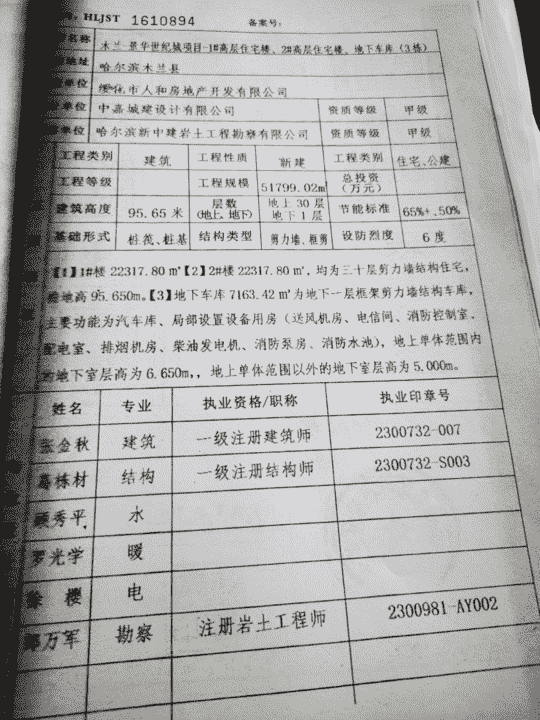 HLJST 1610894 备案号:
名称 木兰·景华世纪城项目-1#高层住宅楼、2#高层住宅楼、地下车库(3栋)
地址 哈尔滨木兰县
单位 绥化市人和房地产开发有限公司
单位 中嘉城建设计有限公司 资质等级 甲级
单位 哈尔滨新中建岩土工程勘察有限公司 资质等级 甲级
工程类别 建筑 工程性质 新建 工程类别 住宅、公建
工程等级 工程规模 51799.02㎡ 总投资(万元)
建筑高度 95.65米 层数(地上、地下) 地上30层 地下1层 节能标准 65%+.50%
基础形式 桩筏、桩基 结构类型 剪力墙、框剪 设防烈度 6度
【1】1#楼 22317.80㎡【2】2#楼 22317.80㎡,均为三十层剪力墙结构住宅,
地高95.650m。【3】地下车库7163.42㎡为地下一层框架剪力墙结构车库,
主要功能为汽车库、局部设置设备用房(送风机房、电信间、消防控制室、
配电室、排烟机房、柴油发电机、消防泵房、消防水池),地上单体范围内
的地下室层高为6.650m,,地上单体范围以外的地下室层高为5.000m。
姓名 专业 执业资格/职称 执业印章号
张金秋 建筑 一级注册建筑师 2300732-007
葛栋材 结构 一级注册结构师 2300732-S003
顾秀平 水
罗光学 暖
徐樱 电
万军 勘察 注册岩土工程师 2300981-AY002